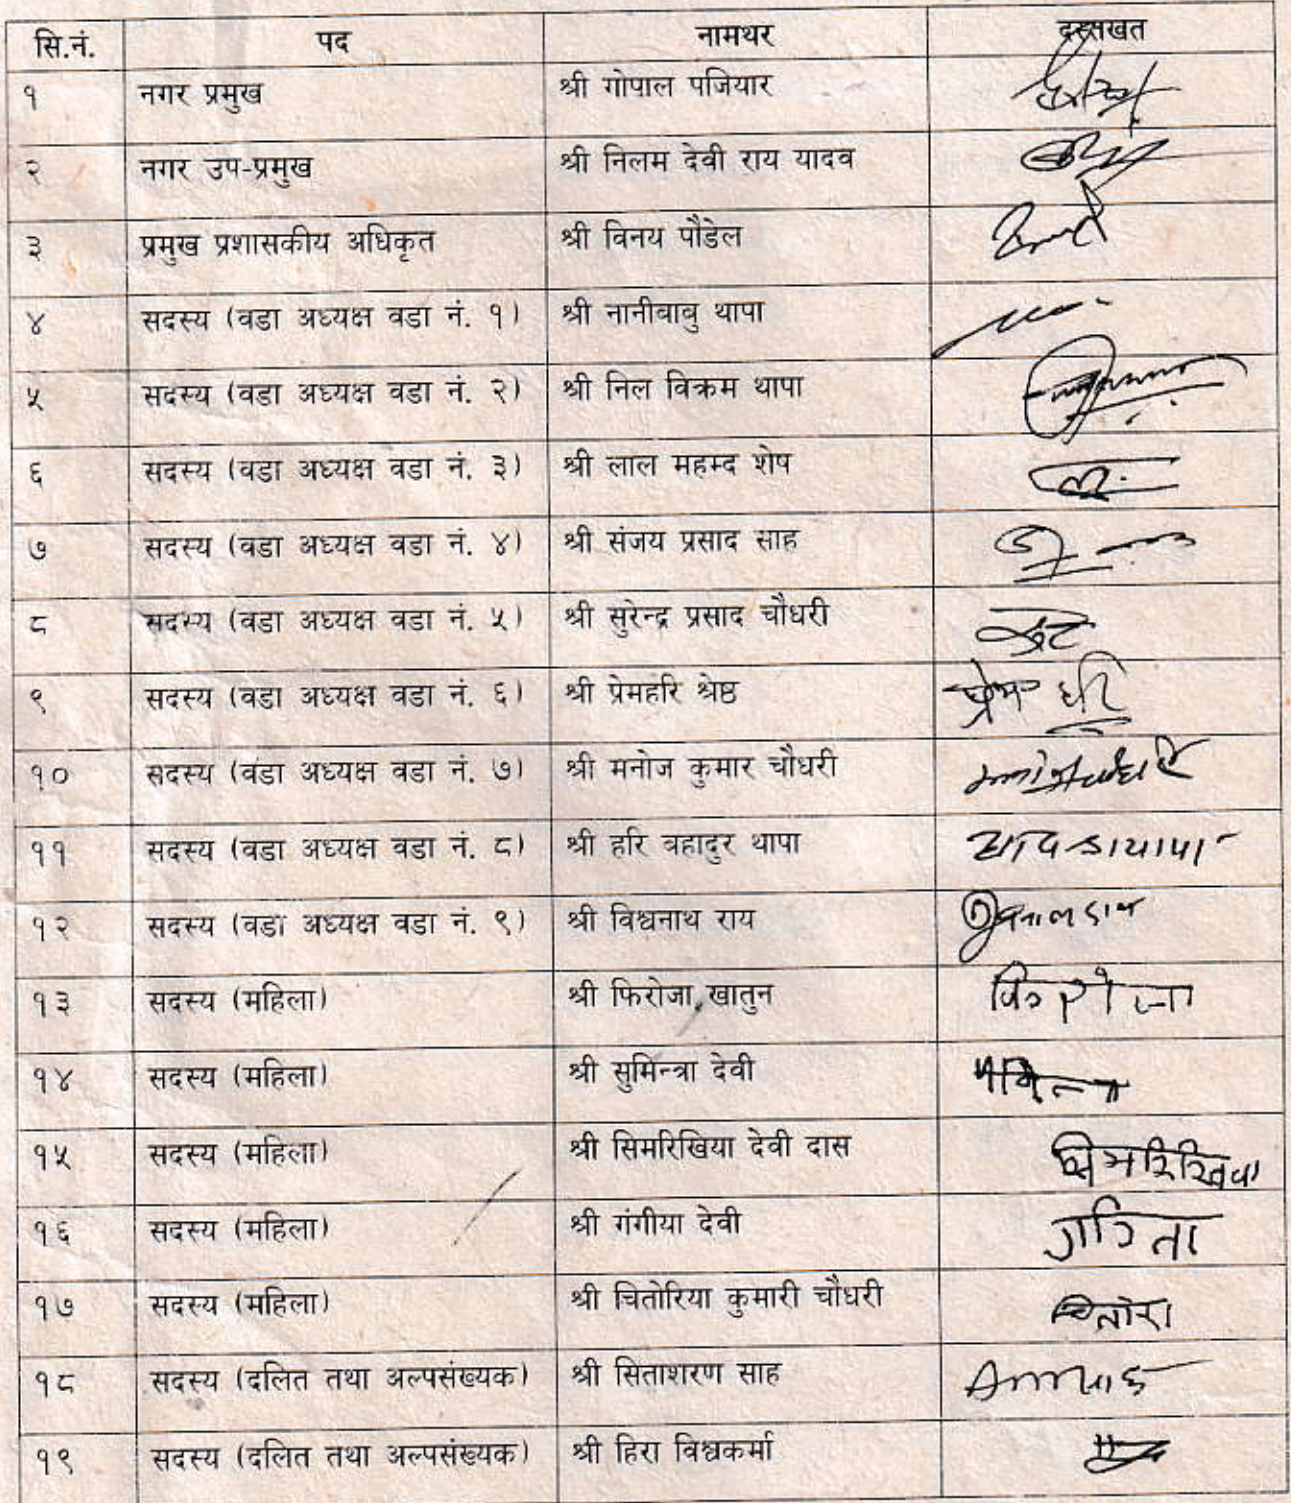 सि.नं. पद नामथर दस्तखत
१ नगर प्रमुख श्री गोपाल पजियार
२ नगर उप-प्रमुख श्री निलम देवी राय यादव
३ प्रमुख प्रशासकीय अधिकृत श्री विनय पौडेल
४ सदस्य (वडा अध्यक्ष वडा नं. १) श्री नानीवावु थापा
५ सदस्य (वडा अध्यक्ष वडा नं. २) श्री निल विक्रम थापा
६ सदस्य (वडा अध्यक्ष वडा नं. ३) श्री लाल महम्द शेष
७ सदस्य (वडा अध्यक्ष वडा नं. ४) श्री संजय प्रसाद साह
८ सदस्य (वडा अध्यक्ष वडा नं. ५) श्री सुरेन्द्र प्रसाद चौधरी
९ सदस्य (वडा अध्यक्ष वडा नं. ६) श्री प्रेमहरि श्रेष्ठ
१० सदस्य (वडा अध्यक्ष वडा नं. ७) श्री मनोज कुमार चौधरी
११ सदस्य (वडा अध्यक्ष वडा नं. ८) श्री हरि वहादुर थापा
१२ सदस्य (वडा अध्यक्ष वडा नं. ९) श्री विश्वनाथ राय
१३ सदस्य (महिला) श्री फिरोजा खातुन
१४ सदस्य (महिला) श्री सुमिन्त्रा देवी
१५ सदस्य (महिला) श्री सिमरिखिया देवी दास
१६ सदस्य (महिला) श्री गंगीया देवी
१७ सदस्य (महिला) श्री चितोरिया कुमारी चौधरी
१८ सदस्य (दलित तथा अल्पसंख्यक) श्री सिताशरण साह
१९ सदस्य (दलित तथा अल्पसंख्यक) श्री हिरा विश्वकर्मा